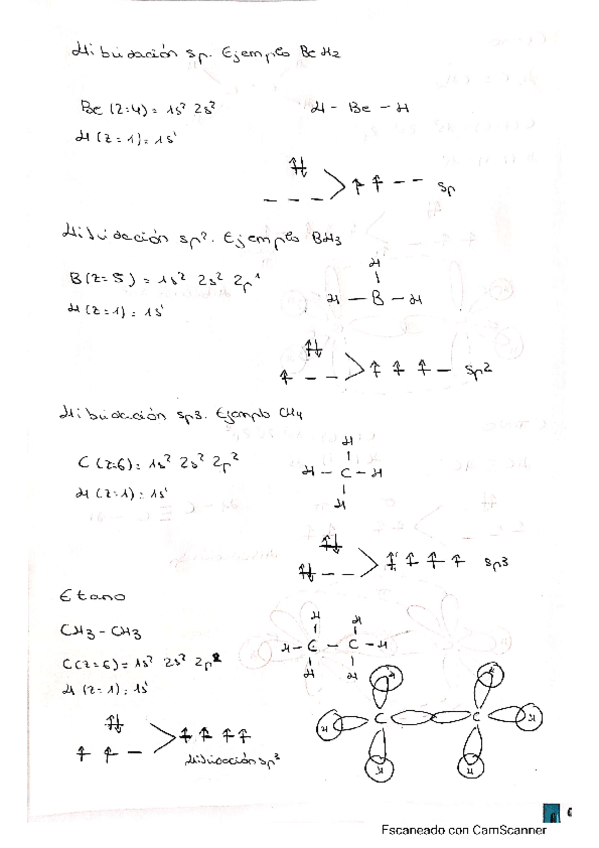 Hibridación sp. Ejemplo BeH2
Be (z=4) = 1s² 2s²
H - Be - H
H (z=1) = 1s¹
sp
Hibridación sp². Ejemplo BH3
B (z=5) = 1s² 2s² 2p¹
H
H - B - H
H (z=1) = 1s¹
sp2
Hibridación sp3. Ejemplo CH4
C (z=6) = 1s² 2s² 2p²
H
H - C - H
H
H (z=1) = 1s¹
sp3
Etano
CH3 - CH3
H H
H - C - C - H
H H
C (z=6) = 1s² 2s² 2p²
H (z=1) = 1s¹
H H
H C C H
H H
Hibridación sp³
Escaneado con CamScanner